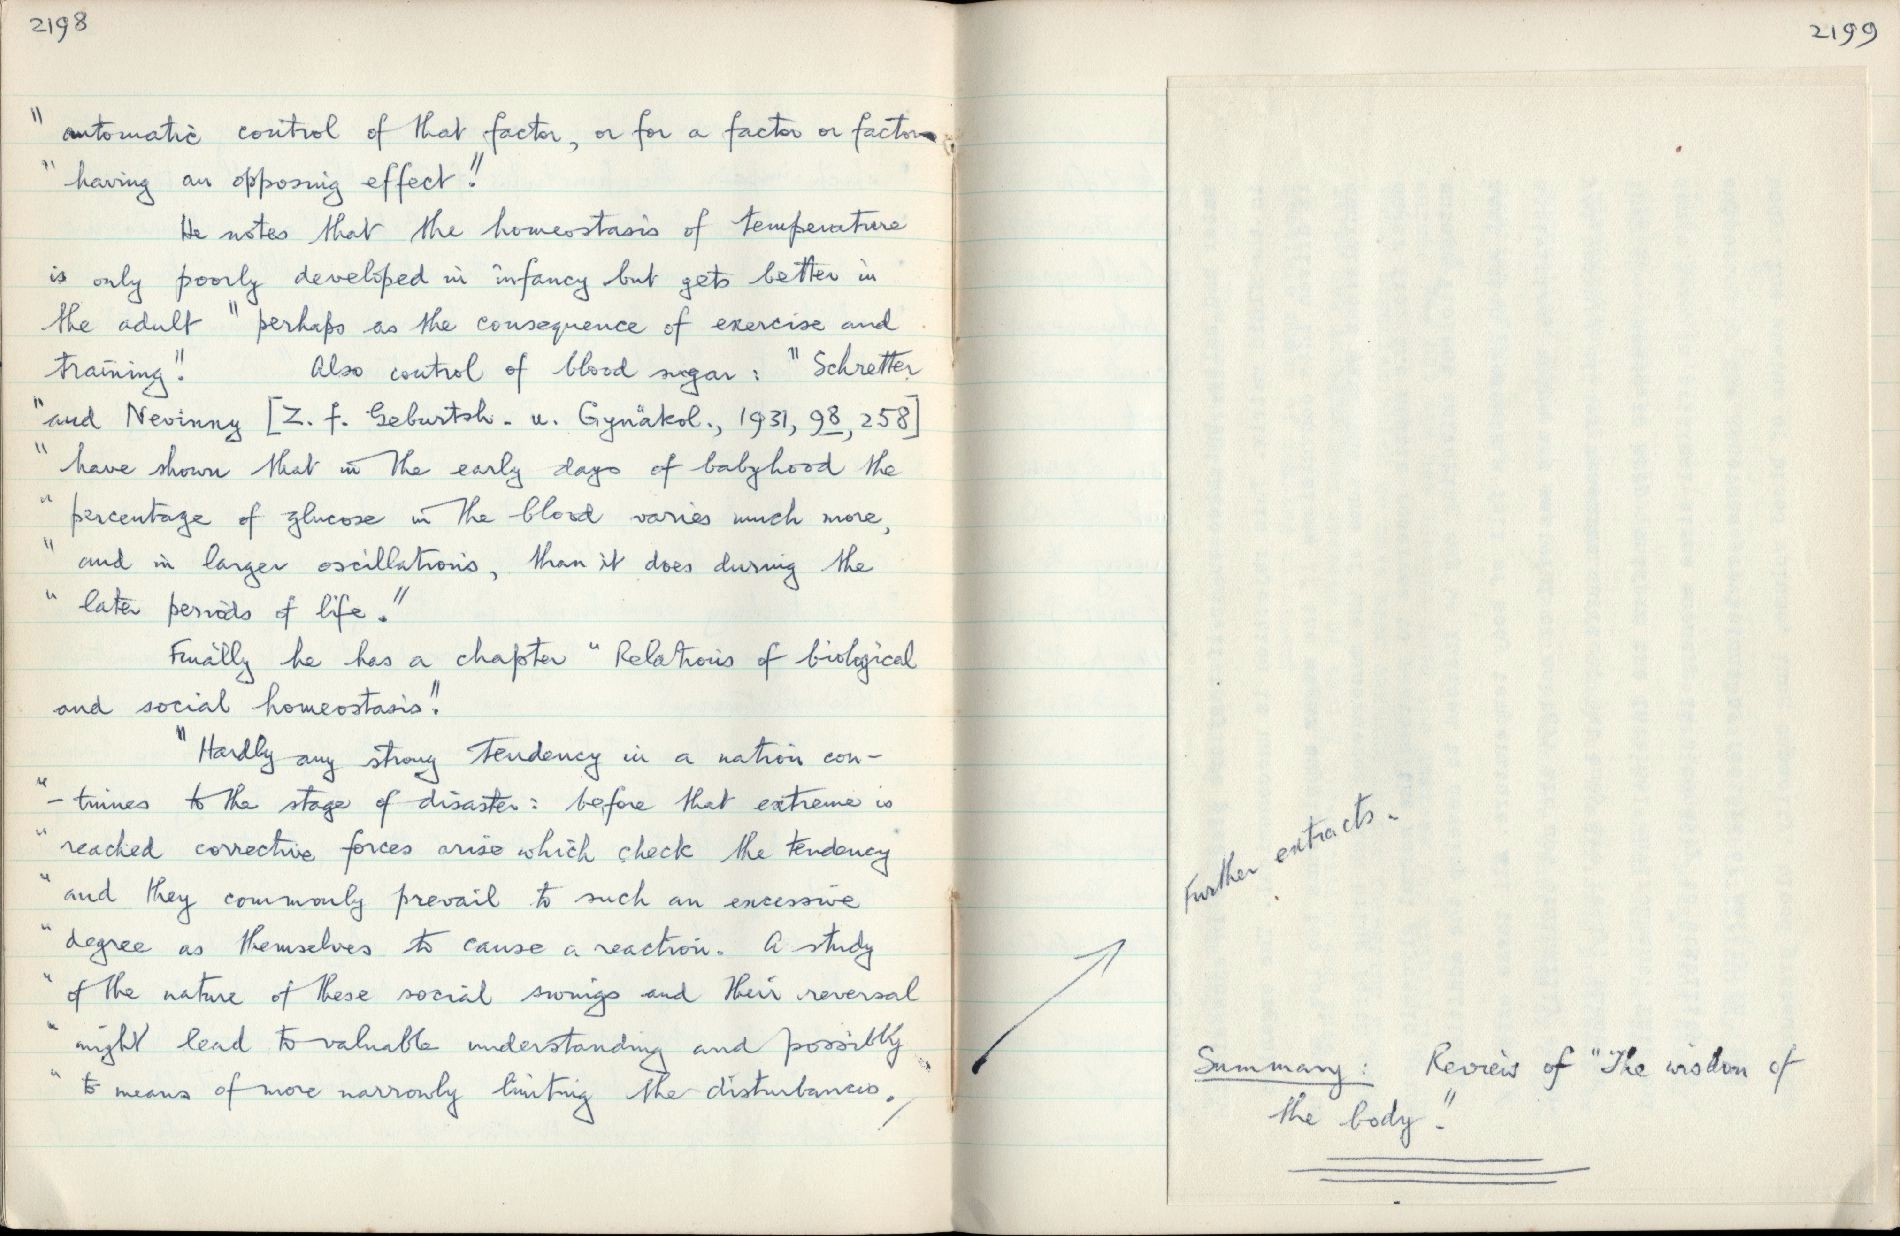 2198
" automatic control of that factor, or for a factor or factors
" having an opposing effect."
He notes that the homeostasis of temperature
is only poorly developed in infancy but gets better in
the adult " perhaps as the consequence of exercise and
training." Also control of blood sugar: " Schretter
" and Nevinny [Z. f. Geburtsh. u. Gynäkol., 1931, 98, 258]
" have shown that in the early days of babyhood the
" percentage of glucose in the blood varies much more,
" and in larger oscillations, than it does during the
" later periods of life."
Finally he has a chapter " Relations of biological
and social homeostasis."
" Hardly any strong tendency in a nation con-
" -tinues to the stage of disaster: before that extreme is
" reached corrective forces arise which check the tendency
" and they commonly prevail to such an excessive
" degree as themselves to cause a reaction. A study
" of the nature of these social swings and their reversal
" might lead to valuable understanding and possibly
" to means of more narrowly limiting the disturbances.
2199
Further extracts.
Summary: Review of "The wisdom of
the body."